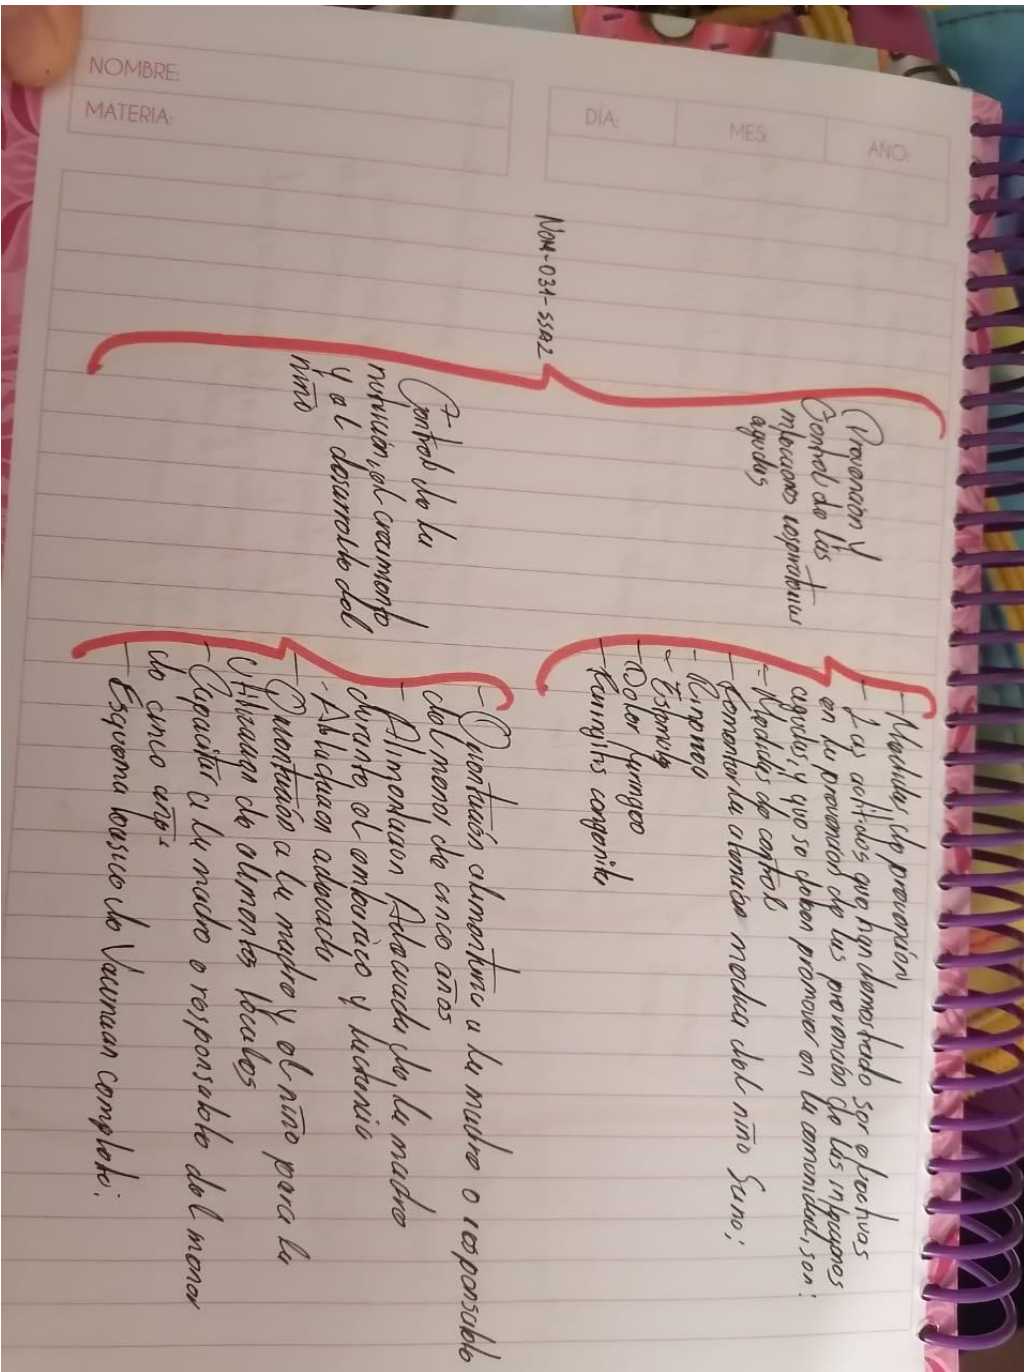 NOMBRE:
MATERIA:
DÍA:
MES:
AÑO:
NOM-031-SSA2
Prevención y
Control de las
infecciones respiratorias
agudas
- Medidas de prevención
- Las actitudes que han demostrado ser efectivas
en la prevención de las prevención de las
agudas, y que se deben promover en la comunidad, son:
- Medidas de control
- Fomentar la atención medica del niño Sano;
-
-
- Dolor
-
Control de la
nutrición, el crecimiento
y el desarrollo del
niño
- Orientación alimentaria a la madre o responsable
del menor de cinco años
- Alimentacion Adecuada de la madre
durante el embarazo y lactancia
- Ablactacion adecuada
- Orientación a la madre y el niño para la
utilizacion de alimentos locales
- Capacitar a la madre o responsable del menor
de cinco años
- Esquema basico de Vacunacion completo: